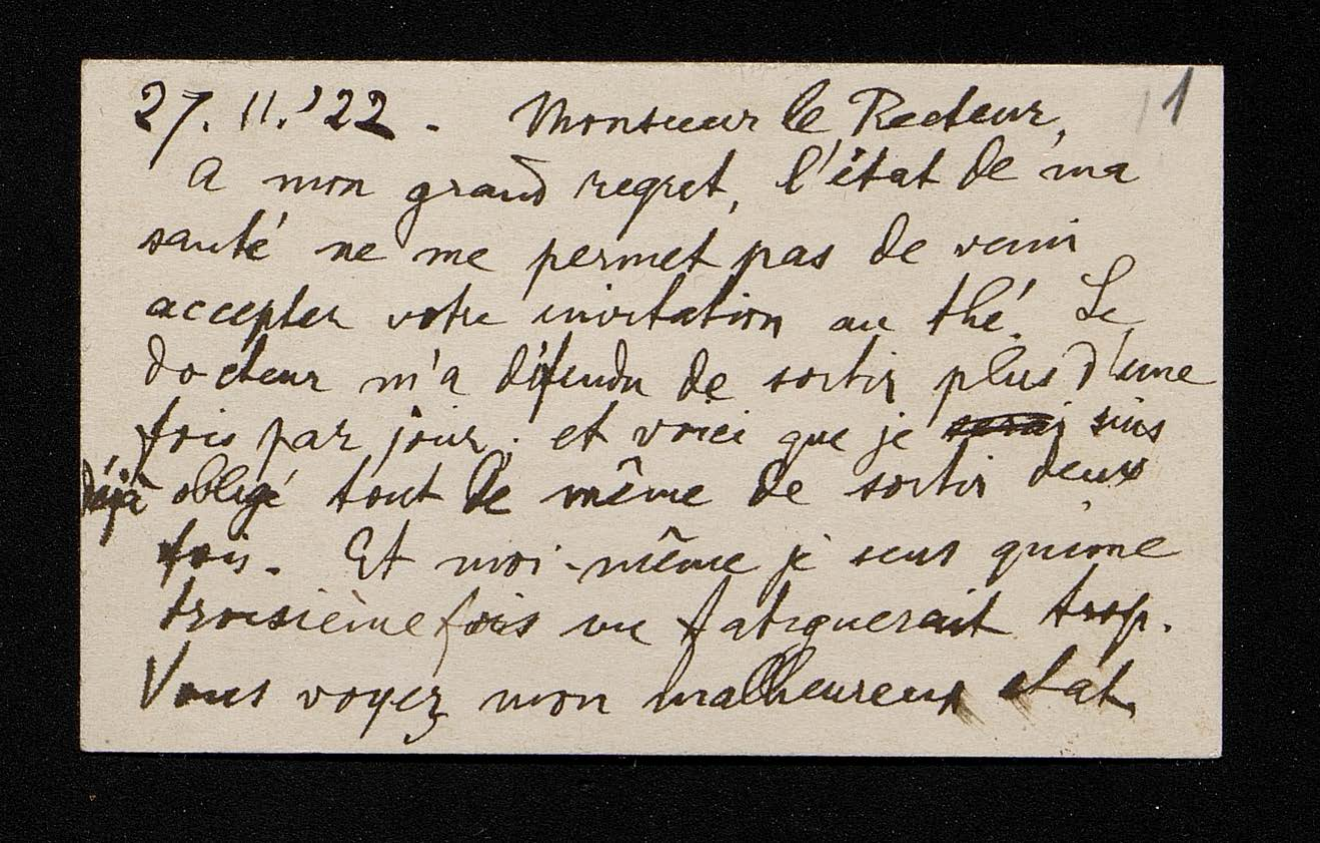 27. 11. '22 - Monsieur le Recteur, 1
A mon grand regret, l'état de ma
santé ne me permet pas de venir
accepter votre invitation au thé. Le
docteur m'a défendu de sortir plus d'une
fois par jour; et voici que je suis
déjà obligé tout de même de sortir deux
fois. Et moi-même je sens qu'une
troisième fois me fatiguerait trop.
Vous voyez mon malheureux état.